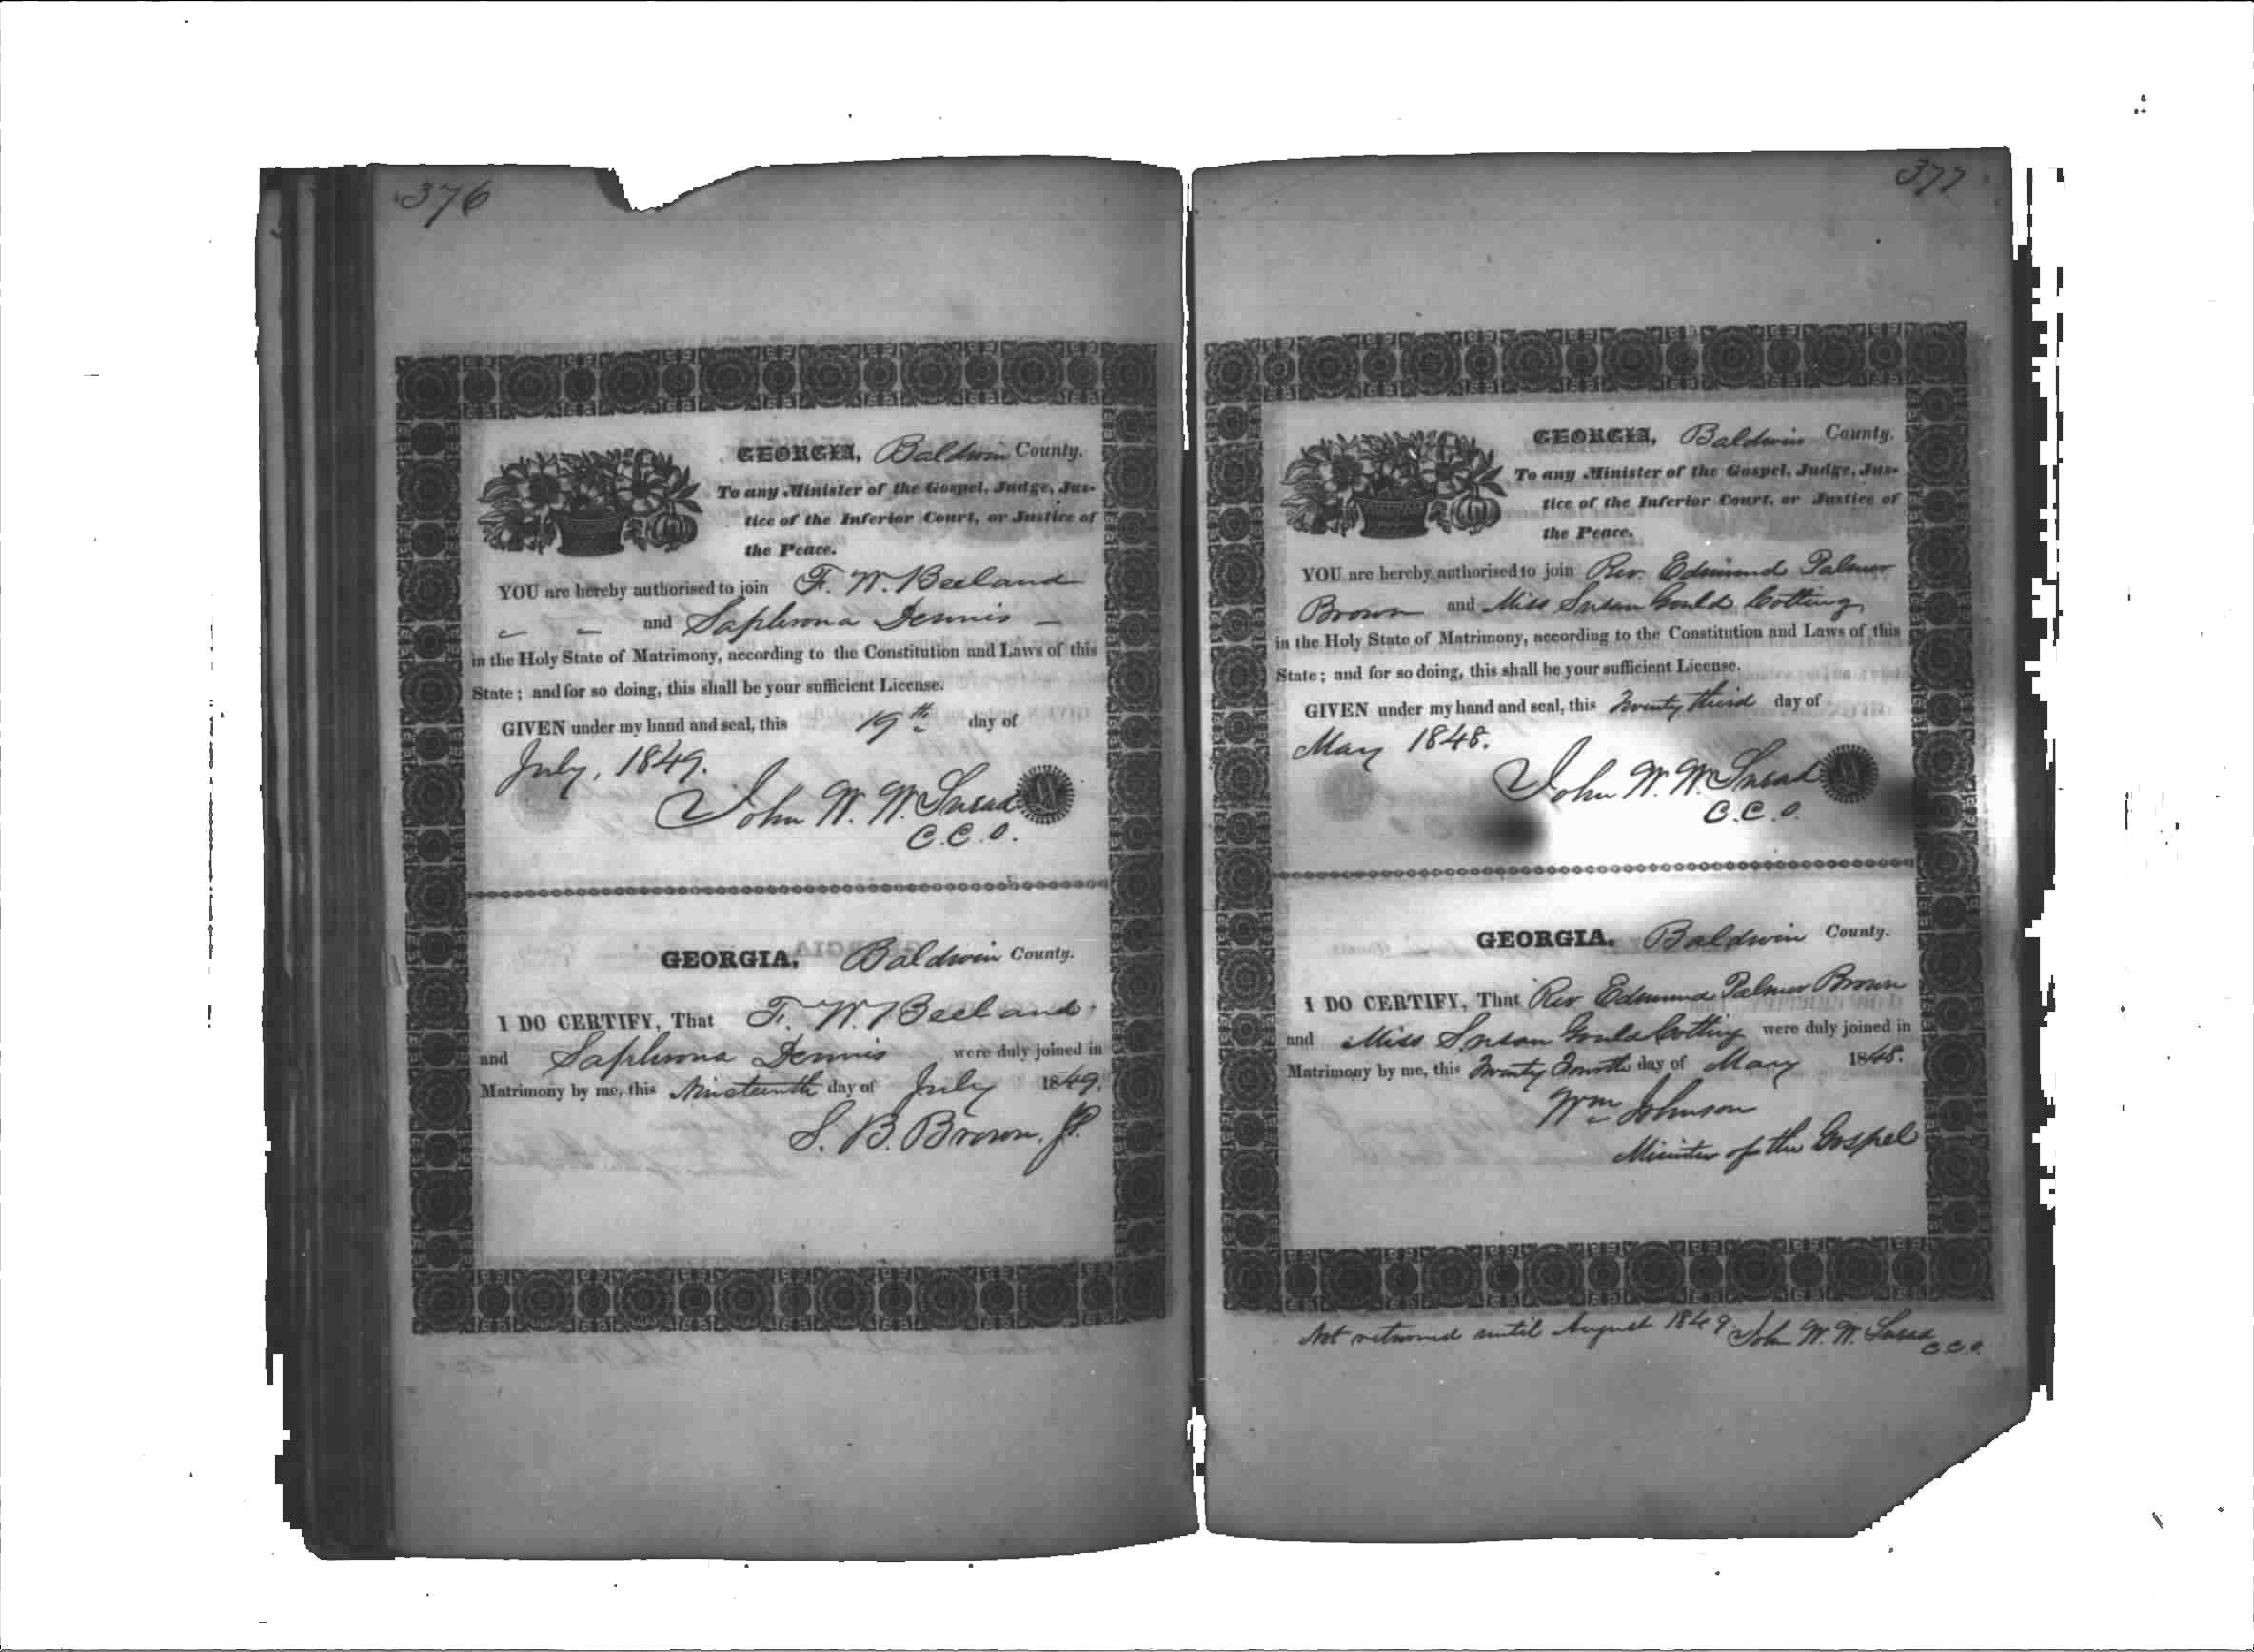 376
GEORGIA, Baldwin County.
To any Minister of the Gospel, Judge, Jus-
tice of the Inferior Court, or Justice of
the Peace.
YOU are hereby authorised to join F. W. Beeland
and Saphrona Dennis
in the Holy State of Matrimony, according to the Constitution and Laws of this
State; and for so doing, this shall be your sufficient License.
GIVEN under my hand and seal, this 19th day of
July, 1849.
John W. W. Snead
C.C.O.
GEORGIA, Baldwin County.
I DO CERTIFY, That F. W. Beeland
and Saphrona Dennis were duly joined in
Matrimony by me, this Nineteenth day of July 1849.
S. B. Brown, JP.
377
GEORGIA, Baldwin County.
To any Minister of the Gospel, Judge, Jus-
tice of the Inferior Court, or Justice of
the Peace.
YOU are hereby authorised to join Rev. Edmund Palmer
Brown and Miss Susan Gould Cotting
in the Holy State of Matrimony, according to the Constitution and Laws of this
State; and for so doing, this shall be your sufficient License.
GIVEN under my hand and seal, this Twenty third day of
May 1848.
John W. W. Snead
C.C.O.
GEORGIA. Baldwin County.
I DO CERTIFY, That Rev Edmund Palmer Brown
and Miss Susan Gould Cotting were duly joined in
Matrimony by me, this Twenty Fourth day of May 1848.
Wm Johnson
Minister of the Gospel
Not returned until August 1849 John W. W. Snead
C.C.O.